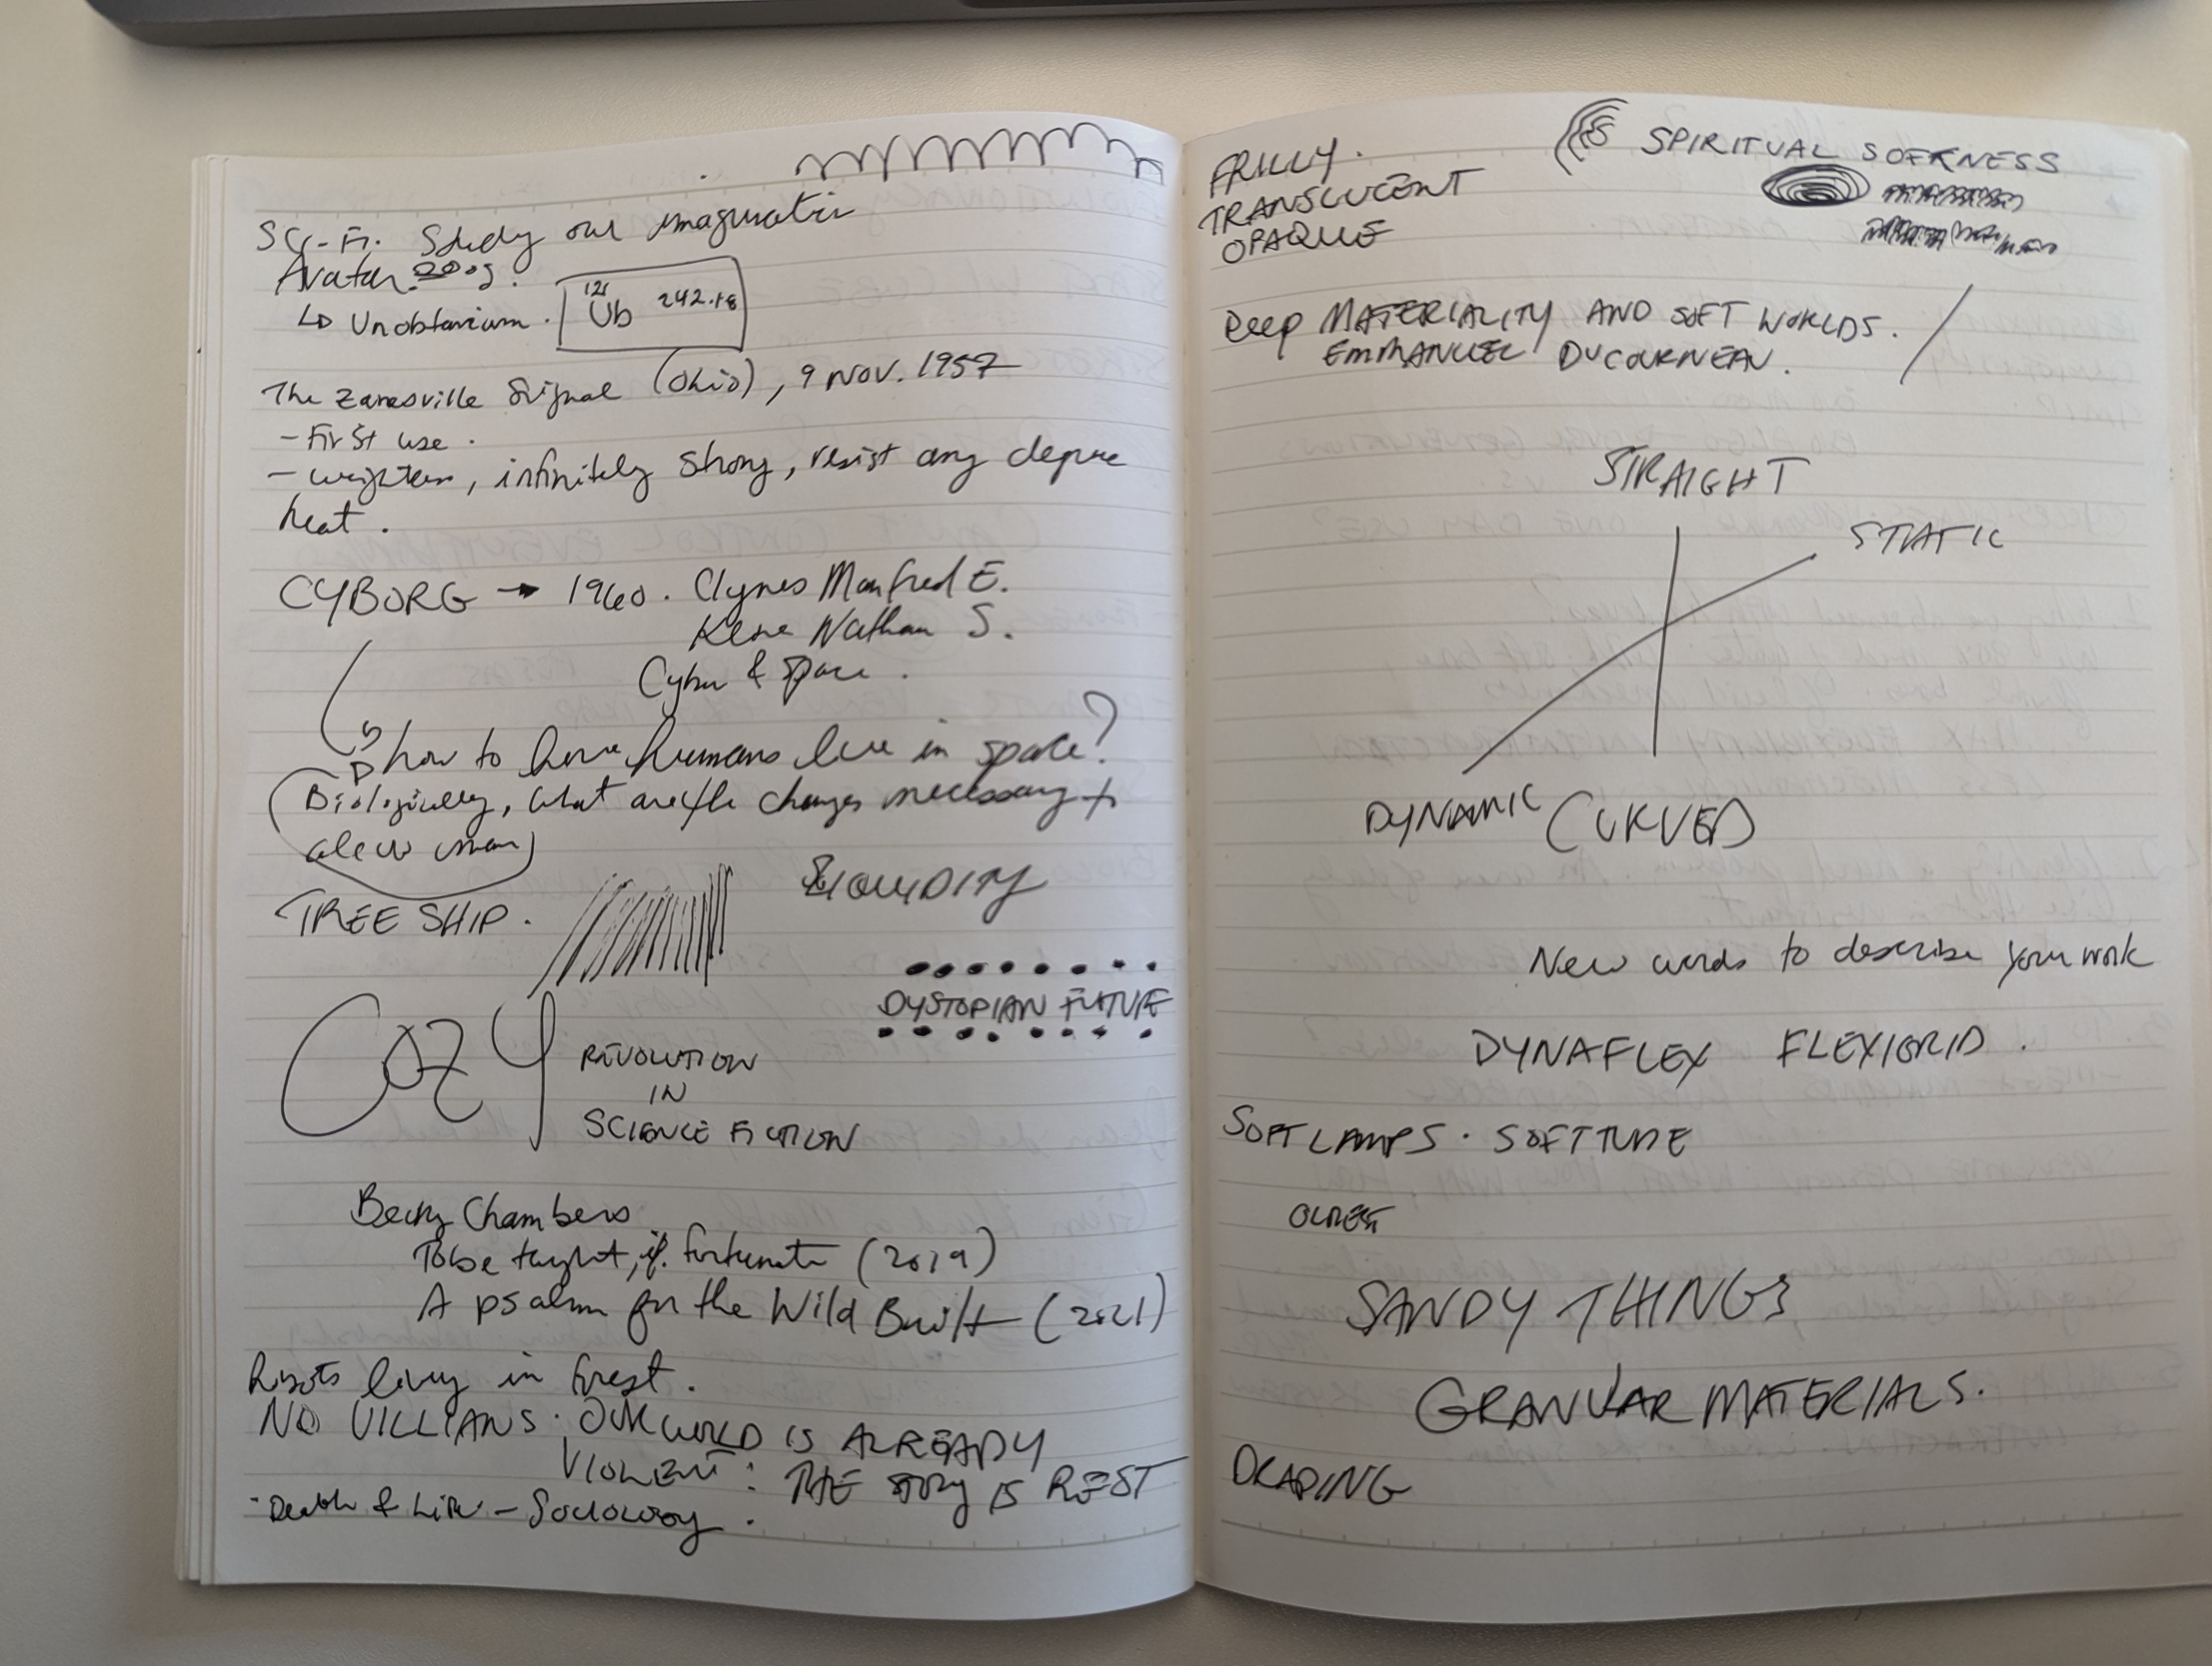 SCI-FI. Study our imagination
Avatar 2009.
↳ Unobtanium. 121 Ub 242.18
The Zanesville Signal (Ohio), 9 NOV. 1957
- First use.
- weightless, infinitely strong, resist any degree
heat.
CYBORG → 1960. Clynes Manfred E.
Kline Nathan S.
Cyber & space.
how to have humans live in space?
Biologically, what are the changes necessary to
TREE SHIP.
LIQUIDITY
DYSTOPIAN FUTURE
COZY
REVOLUTION
IN
SCIENCE FICTION
Becky Chambers
To be taught, if fortunate (2019)
A psalm for the Wild Built (2021)
Robots living in forest.
NO VILLIANS. OUR WORLD IS ALREADY
VIOLENT: THE STORY IS REST
- Death & Life - Sociology.
FRILLY.
TRANSLUCENT
OPAQUE
SPIRITUAL SOFTNESS
Deep MATERIALITY AND SOFT WORLDS.
EMMANUEL DUCOURNEAU.
STRAIGHT
STATIC
DYNAMIC
CURVED
New words to describe your work
DYNAFLEX FLEXIGRID.
SOFT LAMPS. SOFT TUBE
SANDY THINGS
GRANULAR MATERIALS.
DRAPING